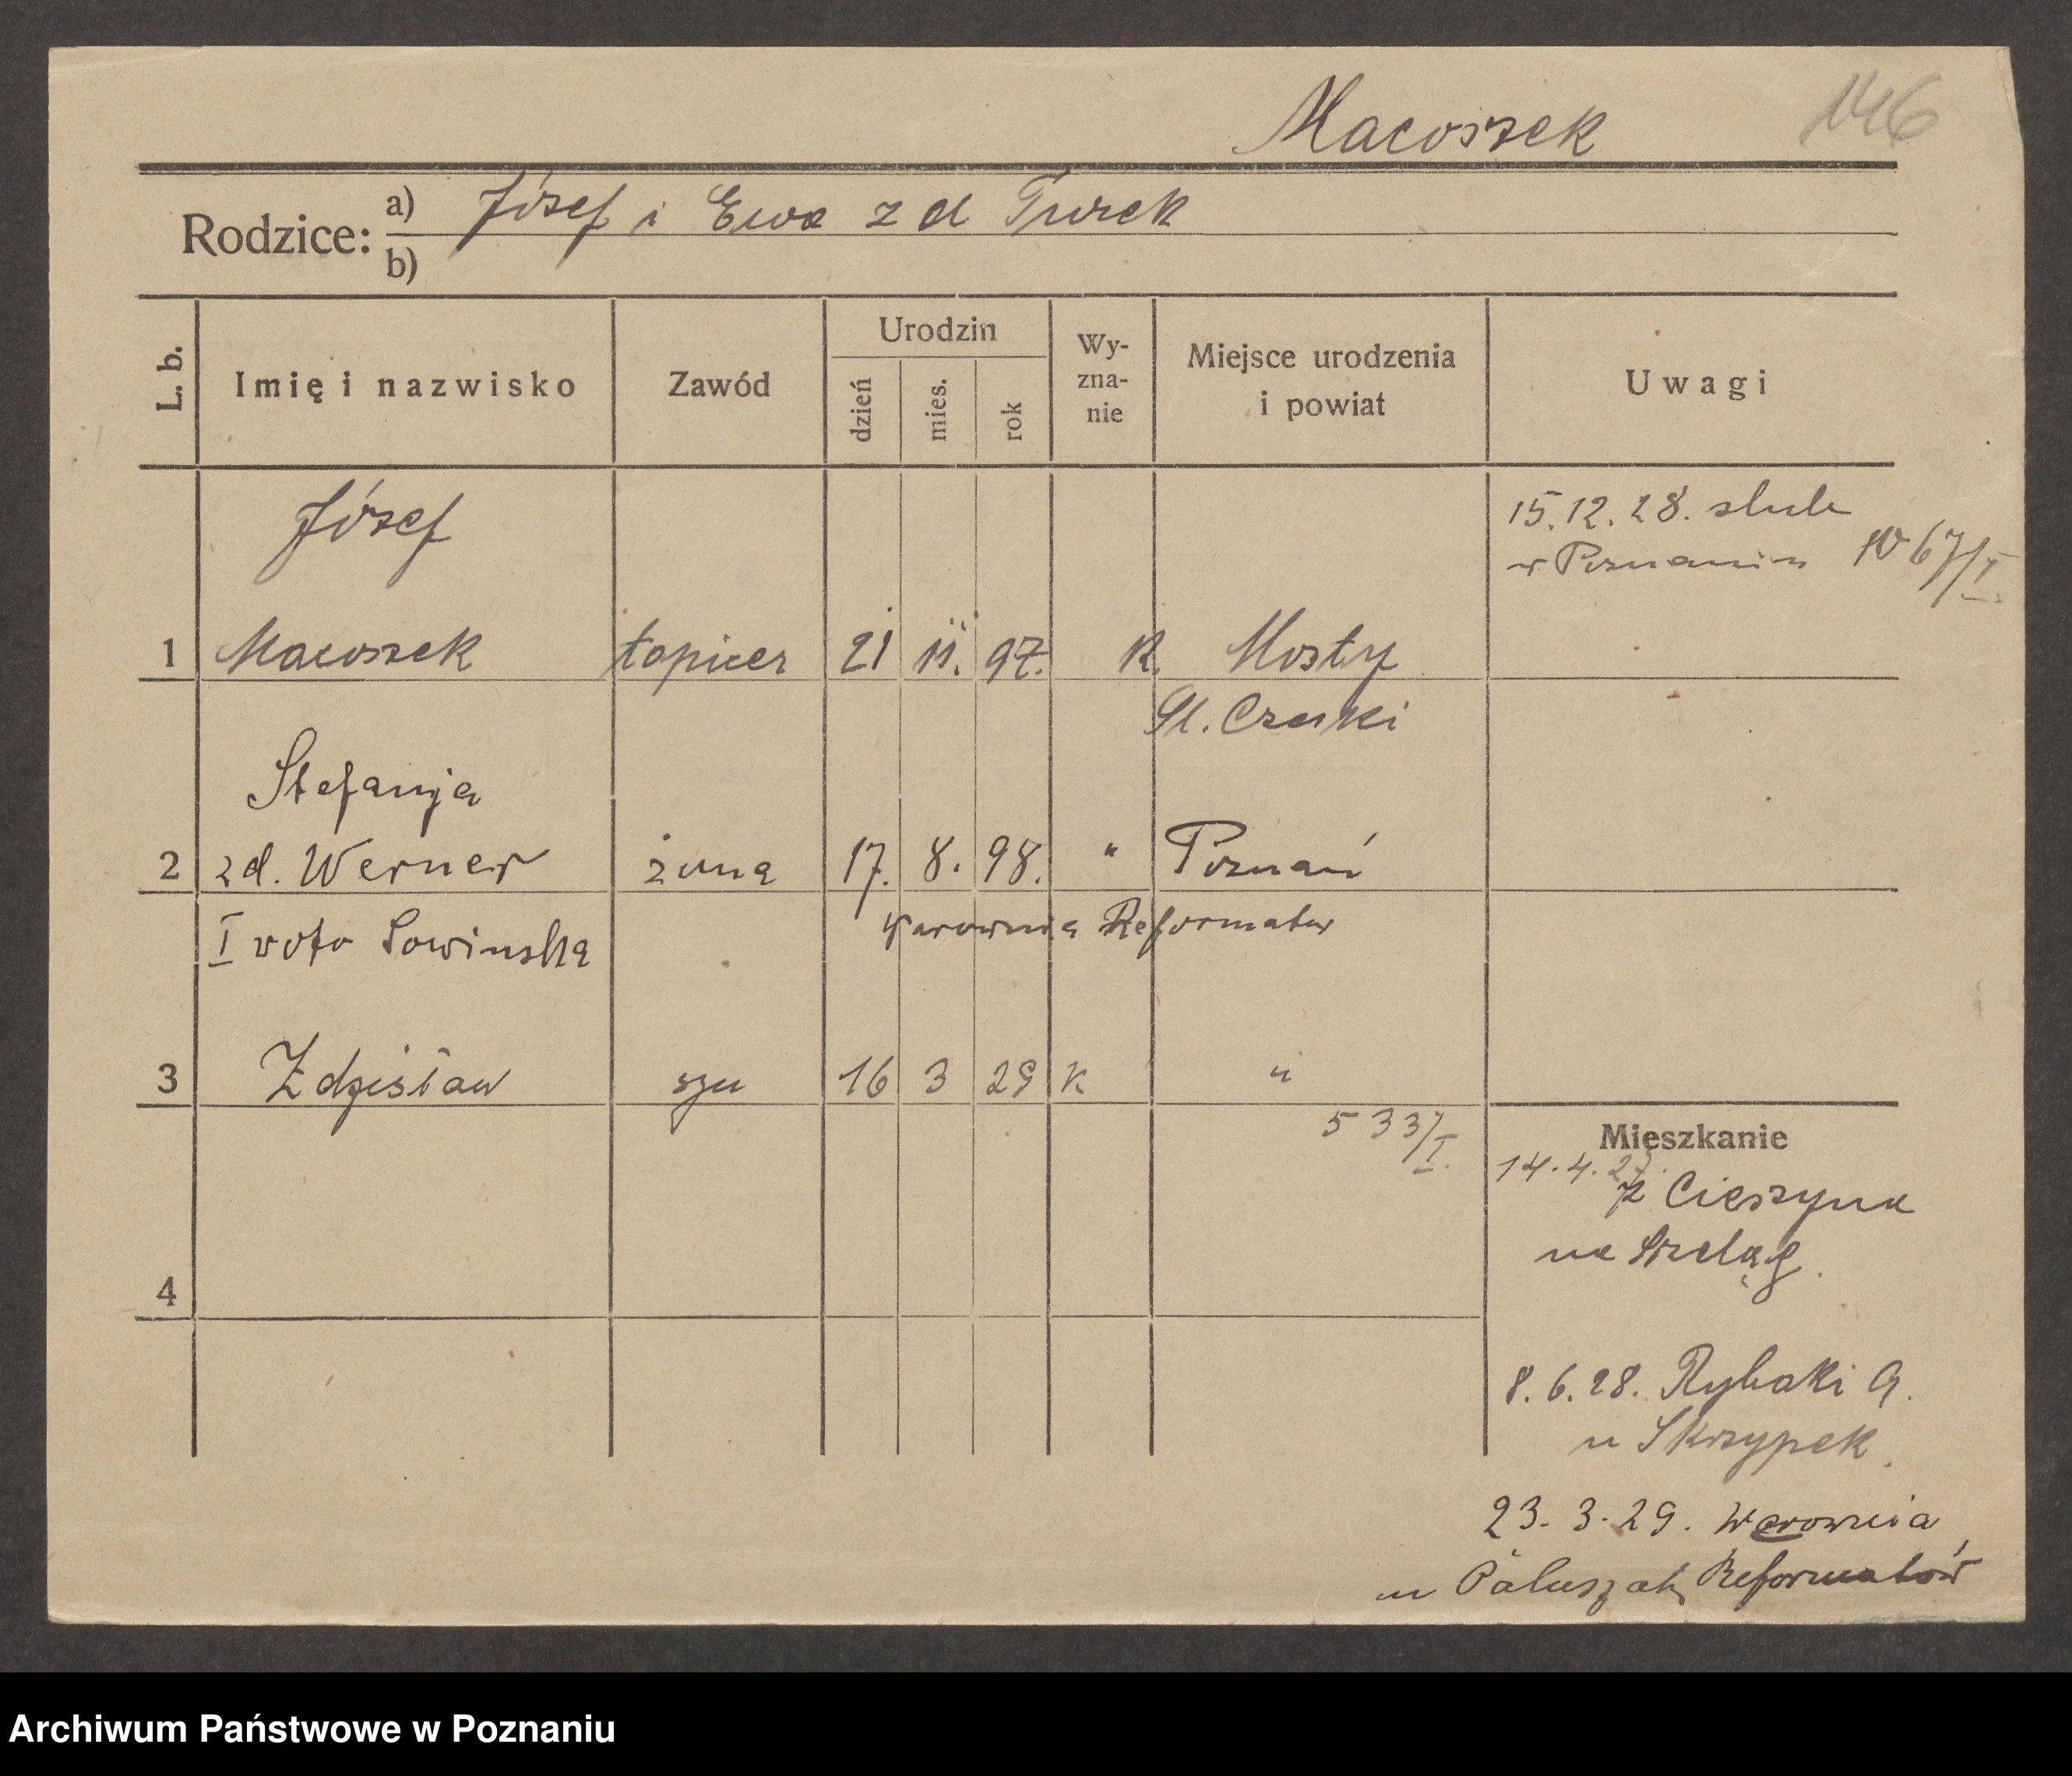 Macoszek 146
Rodzice: a) Józef i Ewa z d Turek
b)
L. b. Imię i nazwisko Zawód Urodzin dzień mies. rok Wy-zna-nie Miejsce urodzenia i powiat Uwagi
Józef 15.12.28. ślub
w Poznaniu 1067/I.
1 Macoszek tapicer 21 11. 97. K. Mosty
Śl. Czeski
Stefanja
2 zd. Werner żona 17. 8. 98. " Poznań
I voto Sowinska Warownia Reformatów
3 Zdzisław syn 16 3 29 K "
533/I.
Mieszkanie
14.4.27.
z Cieszyna
na Szeląg.
4
8.6.28. Rybaki 9.
u Skrzypek.
23.3.29. Warownia
u Paluszak, Reformatów
Archiwum Państwowe w Poznaniu